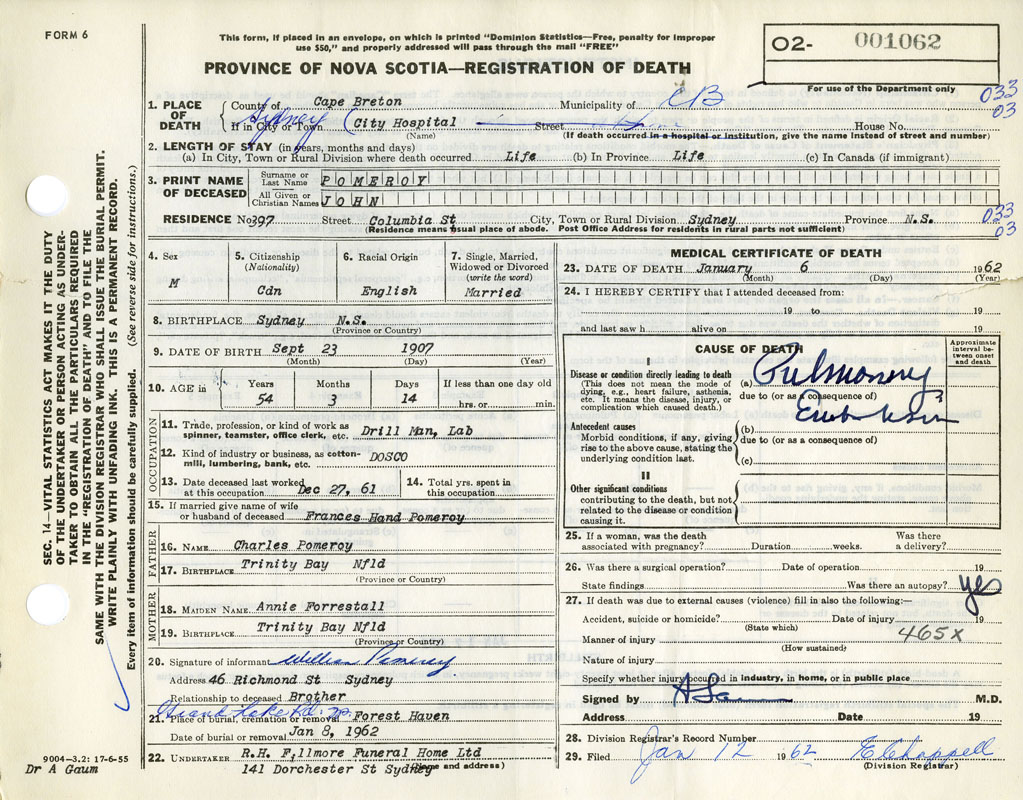 FORM 6
This form, if placed in an envelope, on which is printed "Dominion Statistics—Free, penalty for improper
use $50," and properly addressed will pass through the mail "FREE"
PROVINCE OF NOVA SCOTIA—REGISTRATION OF DEATH
O2- 001062
For use of the Department only
033
03
1. PLACE OF DEATH
County of Cape Breton Municipality of CB
Sydney
If in City or Town (City Hospital Street House No.
(Name) (If death occurred in a hospital or institution, give the name instead of street and number)
2. LENGTH OF STAY (in years, months and days)
(a) In City, Town or Rural Division where death occurred Life (b) In Province Life (c) In Canada (if immigrant)
3. PRINT NAME OF DECEASED
Surname or Last Name POMEROY
All Given or Christian Names JOHN
RESIDENCE No. 397 Street Columbia St City, Town or Rural Division Sydney Province N.S.
(Residence means usual place of abode. Post Office Address for residents in rural parts not sufficient)
033
03
4. Sex
M
5. Citizenship
(Nationality)
Cdn
6. Racial Origin
English
7. Single, Married,
Widowed or Divorced
(write the word)
Married
8. BIRTHPLACE Sydney N.S.
(Province or Country)
9. DATE OF BIRTH Sept 23 1907
(Month) (Day) (Year)
10. AGE in Years Months Days If less than one day old
54 3 14 hrs. or min.
OCCUPATION
11. Trade, profession, or kind of work as
spinner, teamster, office clerk, etc. Drill Man, Lab
12. Kind of industry or business, as cotton-
mill, lumbering, bank, etc. DOSCO
13. Date deceased last worked
at this occupation Dec 27, 61
14. Total yrs. spent in
this occupation
15. If married give name of wife
or husband of deceased Frances Hand Pomeroy
FATHER
16. NAME Charles Pomeroy
17. BIRTHPLACE Trinity Bay Nfld
(Province or Country)
MOTHER
18. MAIDEN NAME Annie Forrestall
19. BIRTHPLACE Trinity Bay Nfld
(Province or Country)
20. Signature of informant William Pomeroy
Address 46 Richmond St Sydney
Relationship to deceased Brother
Grand Lake Rd.
21. Place of burial, cremation or removal Forest Haven
Date of burial or removal Jan 8, 1962
22. UNDERTAKER R.H. Fillmore Funeral Home Ltd
141 Dorchester St Sydney
(Name and address)
MEDICAL CERTIFICATE OF DEATH
23. DATE OF DEATH January 6 1962
(Month) (Day) (Year)
24. I HEREBY CERTIFY that I attended deceased from:
19 to 19
and last saw h alive on 19
CAUSE OF DEATH
Approximate interval between onset and death
I
Disease or condition directly leading to death
(This does not mean the mode of
dying, e.g., heart failure, asthenia,
etc. It means the disease, injury, or
complication which caused death.)
(a) Pulmonary
due to (or as a consequence of)
Embolism
Antecedent causes
Morbid conditions, if any, giving
rise to the above cause, stating the
underlying condition last.
(b)
due to (or as a consequence of)
(c)
II
Other significant conditions
contributing to the death, but not
related to the disease or condition
causing it.
25. If a woman, was the death
associated with pregnancy? Duration weeks. Was there
a delivery?
26. Was there a surgical operation? Date of operation 19
State findings Was there an autopsy? yes
27. If death was due to external causes (violence) fill in also the following:—
Accident, suicide or homicide? Date of injury 19
(State which)
465x
Manner of injury
(How sustained)
Nature of injury
Specify whether injury occurred in industry, in home, or in public place
Signed by M.D.
Address Date 19
28. Division Registrar's Record Number
29. Filed Jan 12 1962 E Chappell
(Division Registrar)
SEC. 14—VITAL STATISTICS ACT MAKES IT THE DUTY
OF THE UNDERTAKER OR PERSON ACTING AS UNDER-
TAKER TO OBTAIN ALL THE PARTICULARS REQUIRED
IN THE "REGISTRATION OF DEATH" AND TO FILE THE
SAME WITH THE DIVISION REGISTRAR WHO SHALL ISSUE THE BURIAL PERMIT.
WRITE PLAINLY WITH UNFADING INK. THIS IS A PERMANENT RECORD.
Every item of information should be carefully supplied. (See reverse side for instructions.)
9004—3.2: 17-6-55
Dr A Gaum